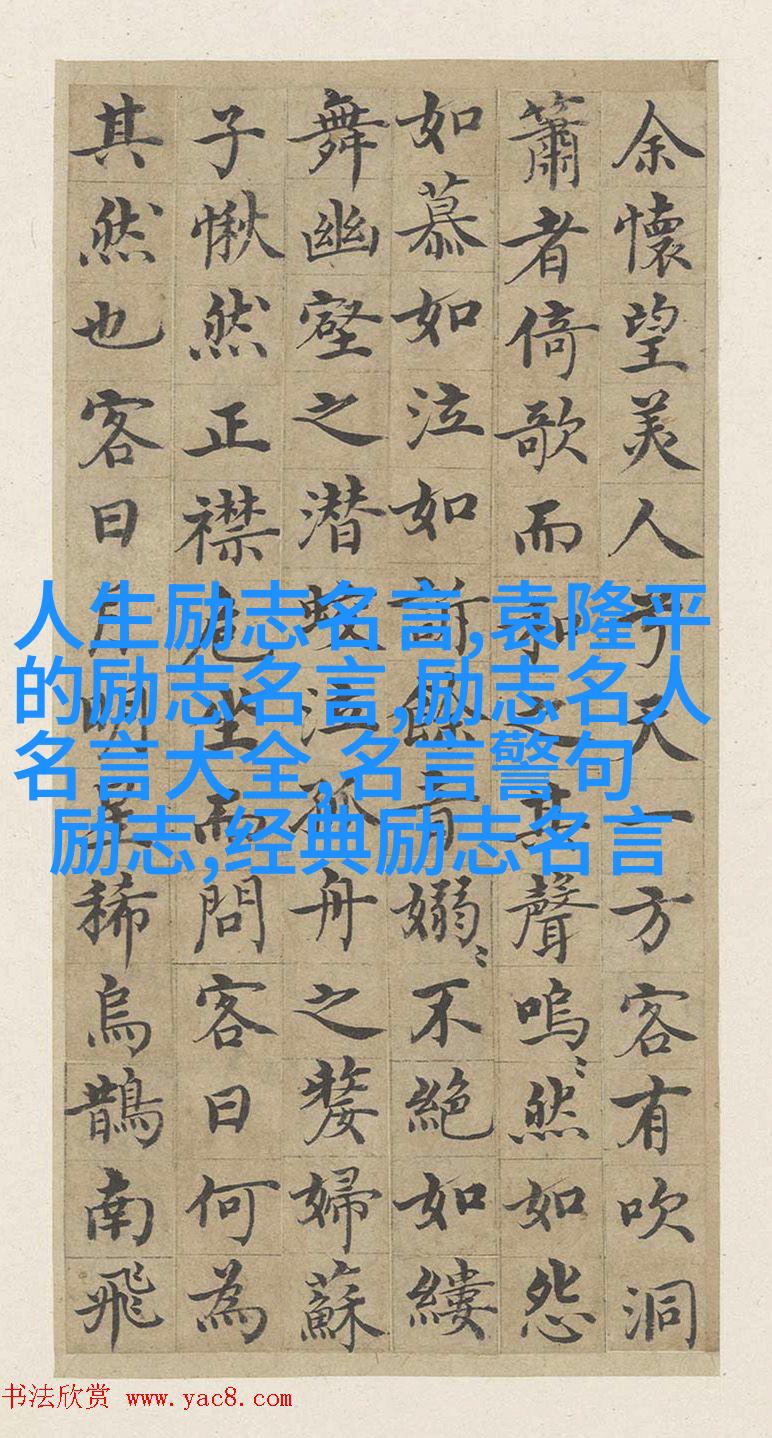 余懷望美人兮天一方客有吹洞
簫者倚歌而和之其聲嗚〻然如怨
如慕如泣如訴餘音嫋〻不絕如縷
舞幽壑之潜蛟泣孤舟之嫠婦蘇
子愀然正襟危坐而問客曰何為
其然也客曰月明星稀烏鵲南飛
人生励志名言,袁隆平
的励志名言,励志名人
名言大全,名言警句
励志,经典励志名言
书法欣赏 www.yac8.com